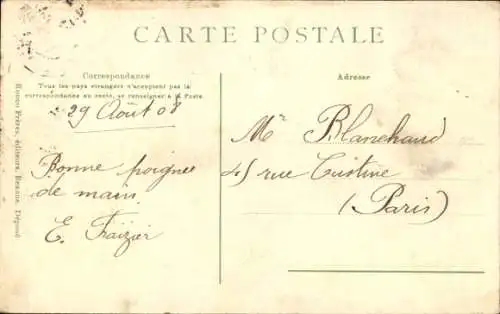 CARTE POSTALE
Correspondance
Tous les pays étrangers n'acceptent pas la
correspondance au recto, se renseigner à la Poste.
29 Août 08
Bonne poignée
de main
E. Fraizier
Adresse
Mr Blanchaud
45 rue Custine
(Paris)
Frères, éditeurs, Dépose